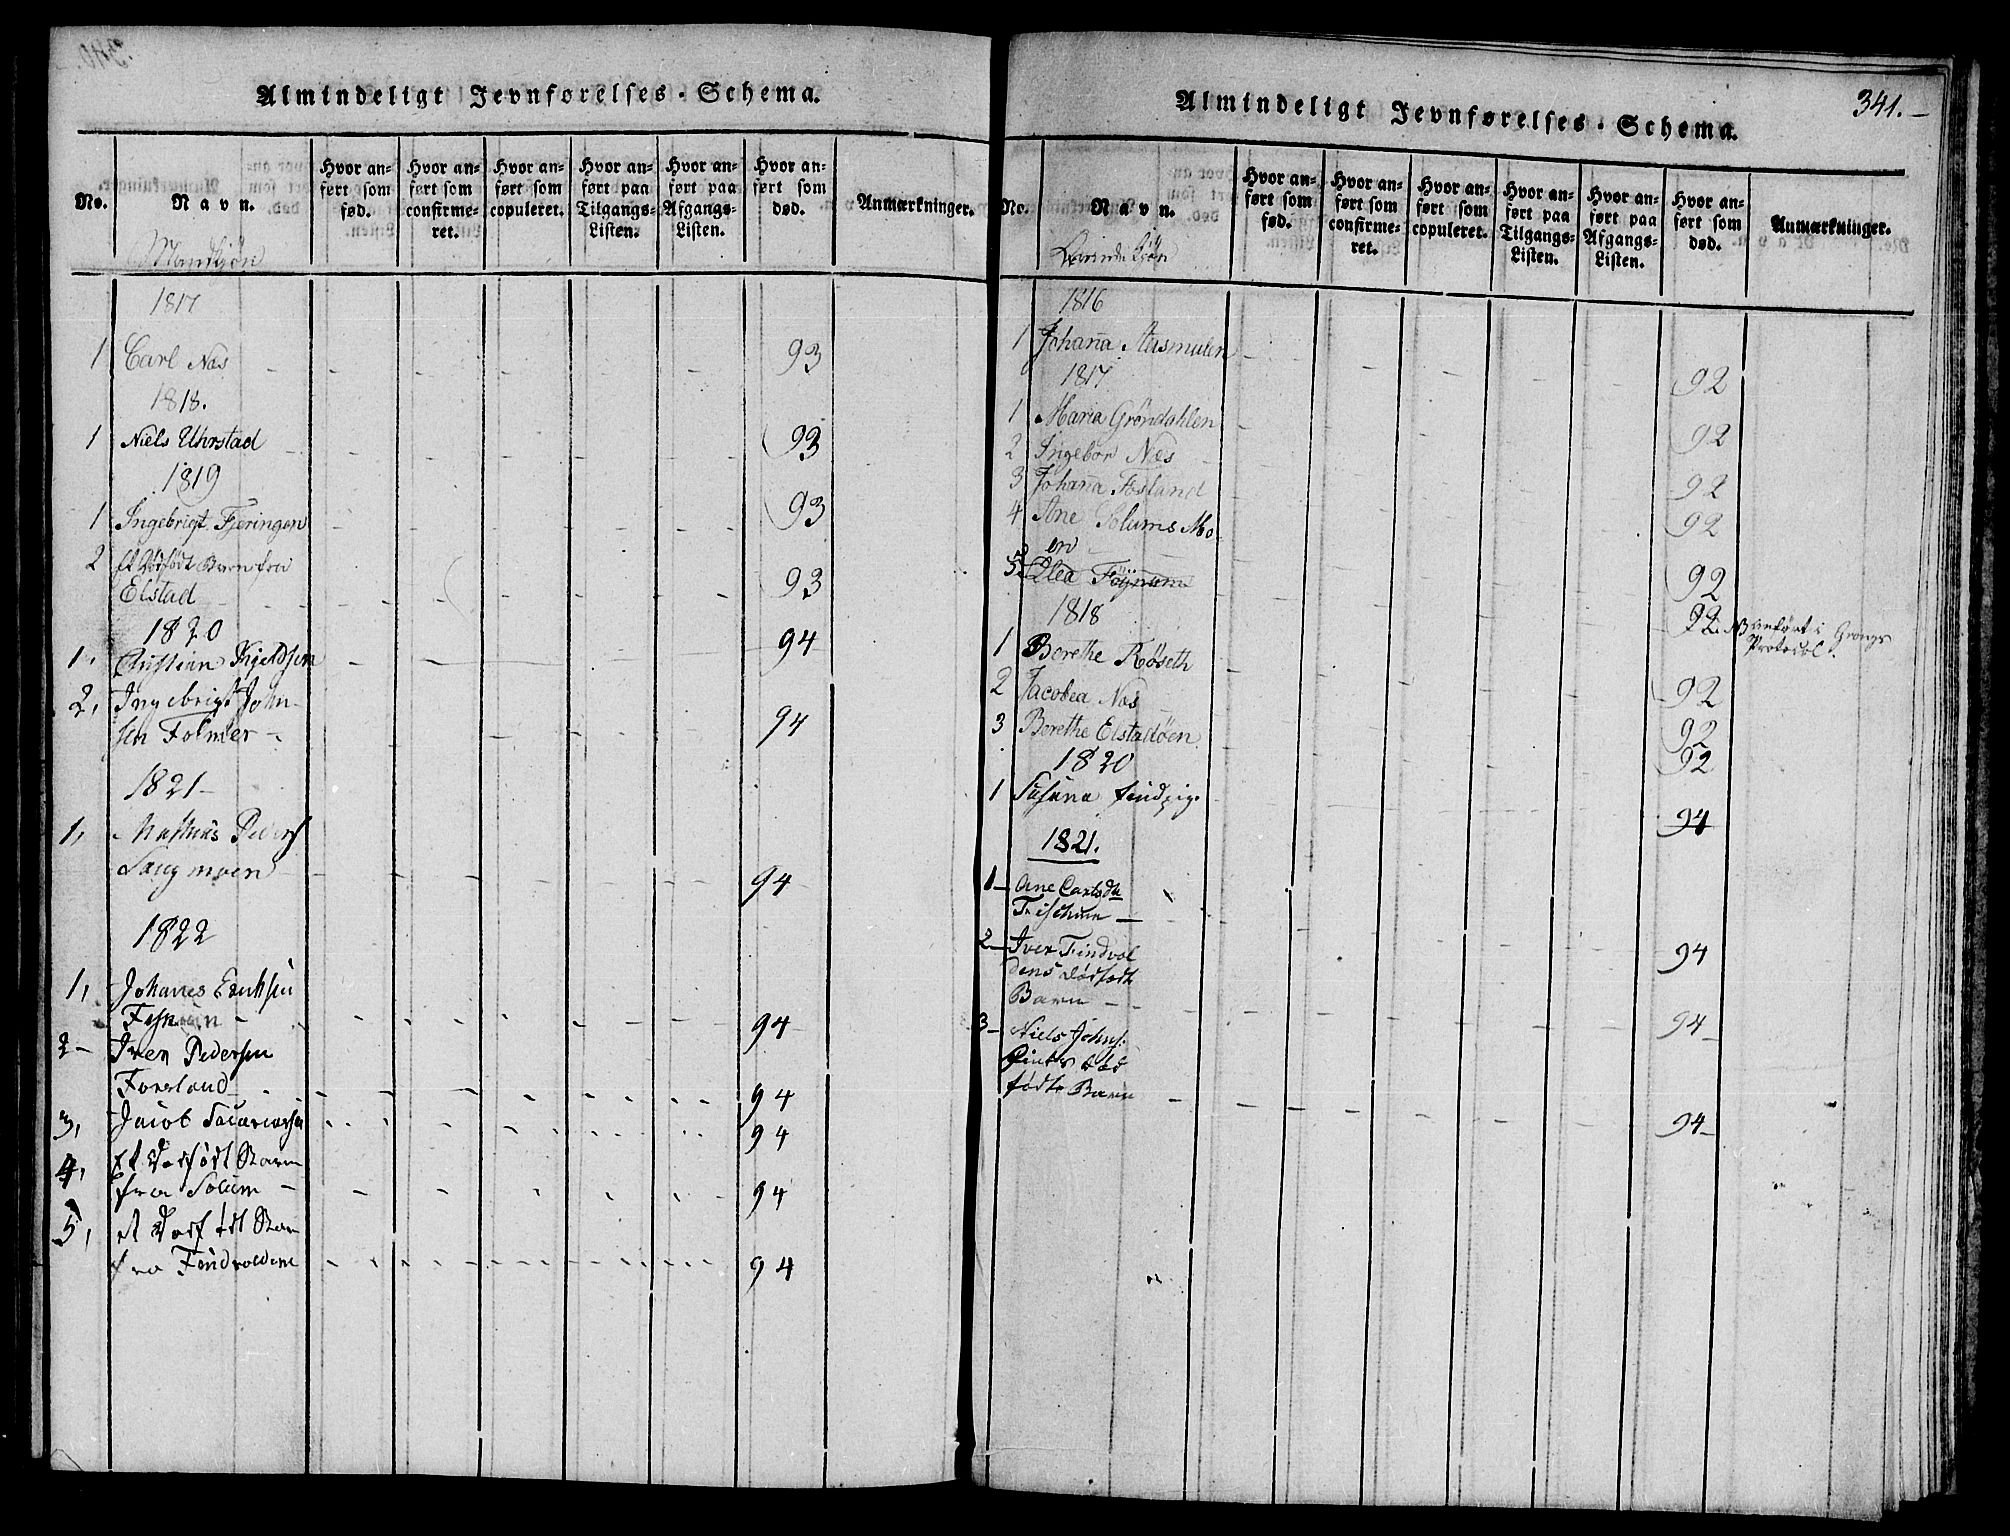 Almindeligt Jevnførelses-Schema.
No.
Navn.
Hvor an-
ført som
fød.
Hvor an-
ført som
confirme-
ret.
Hvor an-
ført som
copuleret.
Hvor an-
ført paa
Tilgangs-
Listen.
Hvor an-
ført paa
Afgangs-
Listen.
Hvor an-
ført som
død.
Anmærkninger.
Mandkjøn
1817
1 Carl Næs 93
1818.
1 Niels Uhrstad 93
1819
1 Ingebrigt Fjeringen 93
2 et dødfødt Barn fra
Elstad 93
1820
1, Christian Kjeldsen 94
2, Ingebrigt John-
sen Folmer 94
1821
1, Mathias Peders
Langmoen 94
1822
1, Johanes Erichsen
94
2 Iver Pedersen
Forsland 94
3, Jacob Sacariasen 94
4, et dødfødt Barn
fra Solum 94
5, et dødfødt Barn
fra Findvolden 94
341.
Almindeligt Jevnførelses-Schema.
No.
Navn.
Hvor an-
ført som
fød.
Hvor an-
ført som
confirme-
ret.
Hvor an-
ført som
copuleret.
Hvor an-
ført paa
Tilgangs-
Listen.
Hvor an-
ført paa
Afgangs-
Listen.
Hvor an-
ført som
død.
Anmærkninger.
Qvindekjøn
1816
1 Johana Aasmulen 92
1817
1 Maria Gröndahlen 92
2 Ingebor Næs 92
3 Johana Fosland 92
4 Ane Solums Mo-
en 92
5 Olea 92. NB anført i Grongs
Protocol.
1818
1 Berethe Røseth 92
2 Jacobea Næs 92
3 Berethe Elstadöen 92
1820
1 Susana 94
1821.
1 Ane Carlsda
94
2 Iver Findvol
dens dødfødte
Barn 94
3 Niels Johns.
død
fødte Barn 94